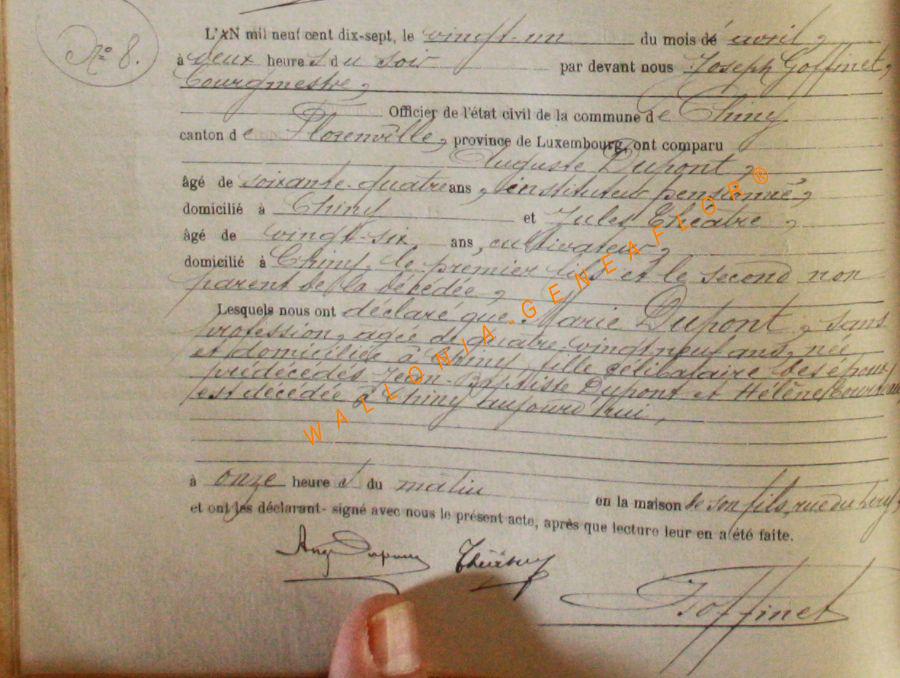 No 8.
L'AN mil neuf cent dix-sept, le vingt-un du mois de avril,
à deux heures du soir par devant nous Joseph Goffinet,
bourgmestre,
Officier de l'état civil de la commune de Chiny
canton de Florenville, province de Luxembourg, ont comparu
Auguste Dupont,
âgé de soixante-quatre ans, instituteur pensionné,
domicilié à Chiny et Jules Théâtre,
âgé de vingt-six ans, cultivateur,
domicilié à Chiny, le premier fils et le second non
parent de la décédée,
Lesquels nous ont déclaré que Marie Dupont, sans
profession, agée de quatre vingt neuf ans, née
et domiciliée à Chiny fille célibataire des époux
prédécédés Jean-Baptiste Dupont et Hélène
est décédée à Chiny aujourd'hui,
à onze heures du matin en la maison de son fils, rue du
et ont les déclarant- signé avec nous le présent acte, après que lecture leur en a été faite.
Aug Dupont Théâtre
JGoffinet
WALLONIA-GENEAFLOR®